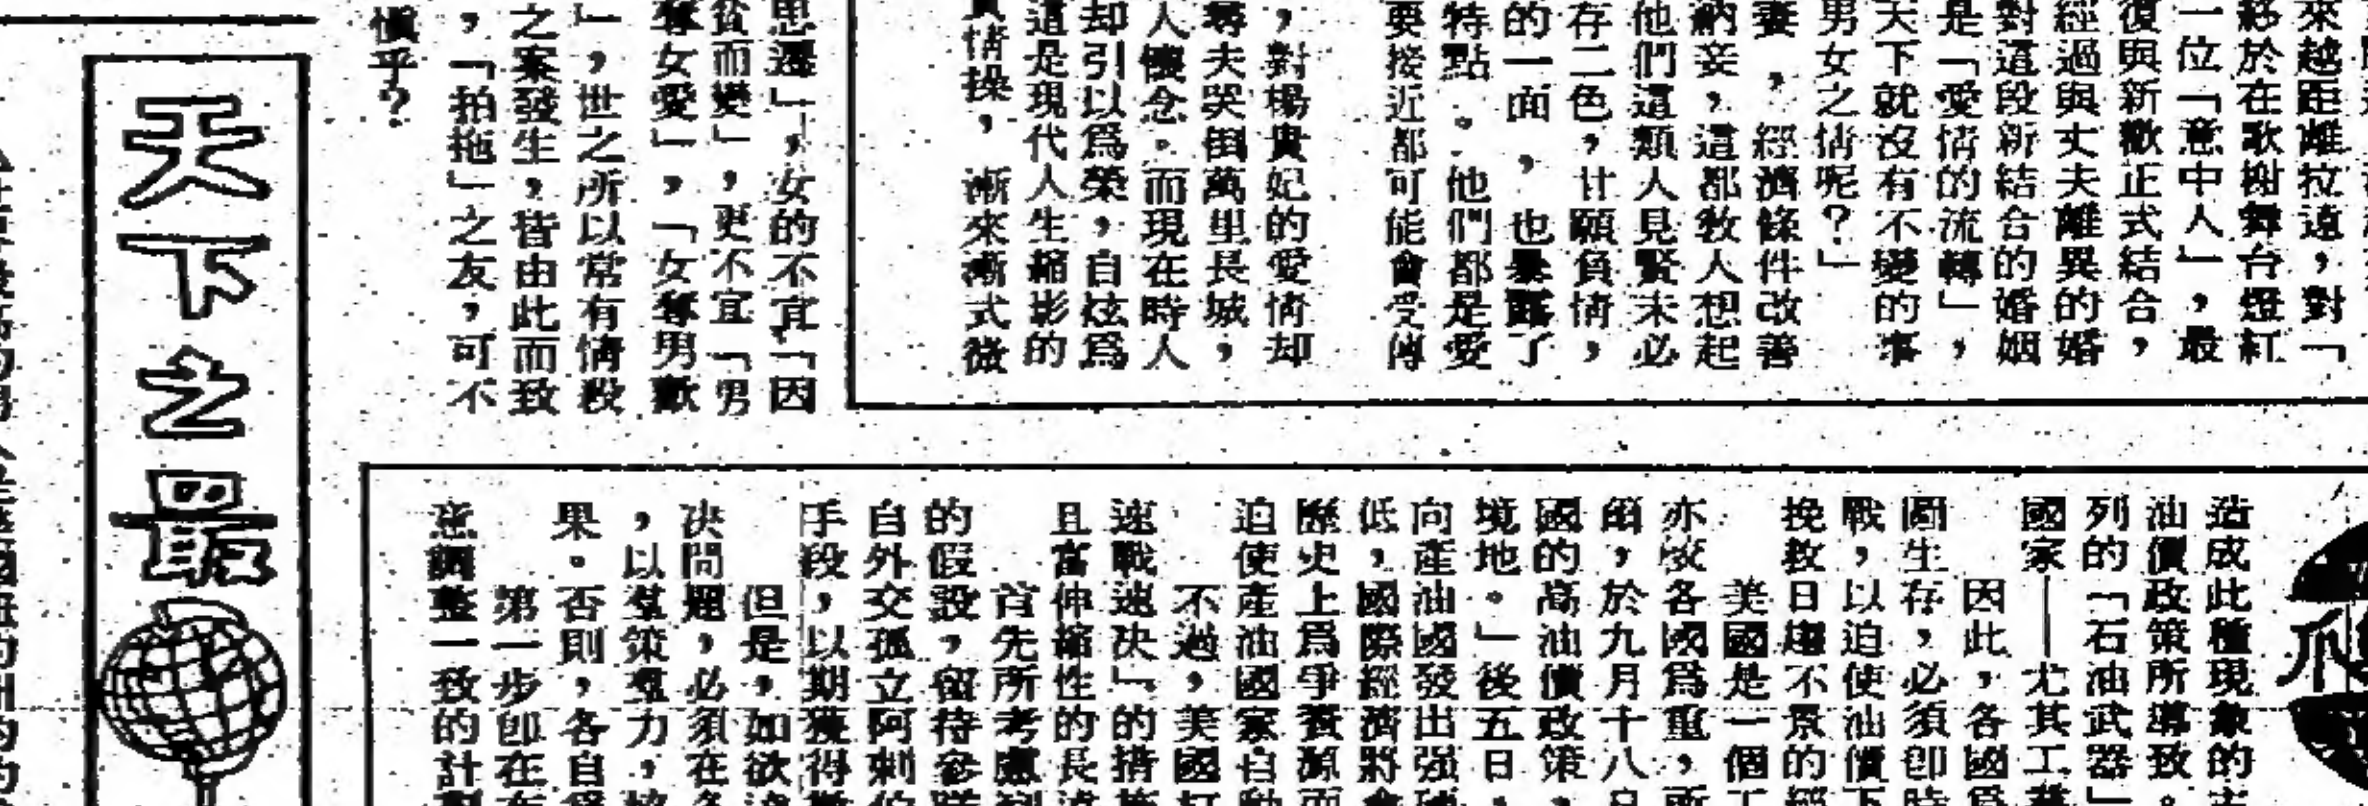 來越距離拉遠，對「
移於在歌榭舞台燈紅
一位「意中人」，最
復與新歡正式結合，
經過與丈夫離異的婚
對這段新結合的婚姻
是「愛情的流轉」，
天下就沒有不變的事
男女之情呢？」
妻，經濟條件改善
納妾，這都教人想起
他們這類人見賢未必
存二色，甘願負情，
的一面，也暴露了
特點。他們都是愛
要接近都可能會受傳
，對楊貴妃的愛情却
尋夫哭倒萬里長城，
人懷念。而現在時人
却引以爲榮，自炫爲
這是現代人生縮影的
情操，漸來漸式微
思遷」，女的不宜「因
貧而變」，更不宜「男
奪女愛」，「女奪男歡
」，世之所以常有情殺
之案發生，皆由此而致
，「拍拖」之友，可不
慎乎？
造成此種現象的主
油價政策所導致。
列的「石油武器」
國家——尤其工業
因此，各國爲
圖生存，必須即時
戰，以迫使油價下
挽救日趨不景的經
美國是一個工
亦較各國爲重，所
，於九月十八日
國的高油價政策，
境地。」後五日，
向產油國發出强硬
低，國際經濟將會
歷史上爲爭資源而
迫使產油國家自動
不過，美國
速戰速决」的措施
且富伸縮性的長
首先所考慮到
的假設，留待
自外交孤立阿剌伯
手段，以期獲得
但是，如欲
决問題，必須在各
，以羣策羣力，
果。否則，各自爲
第一步卽在
意調整一致的計劃
天下之最